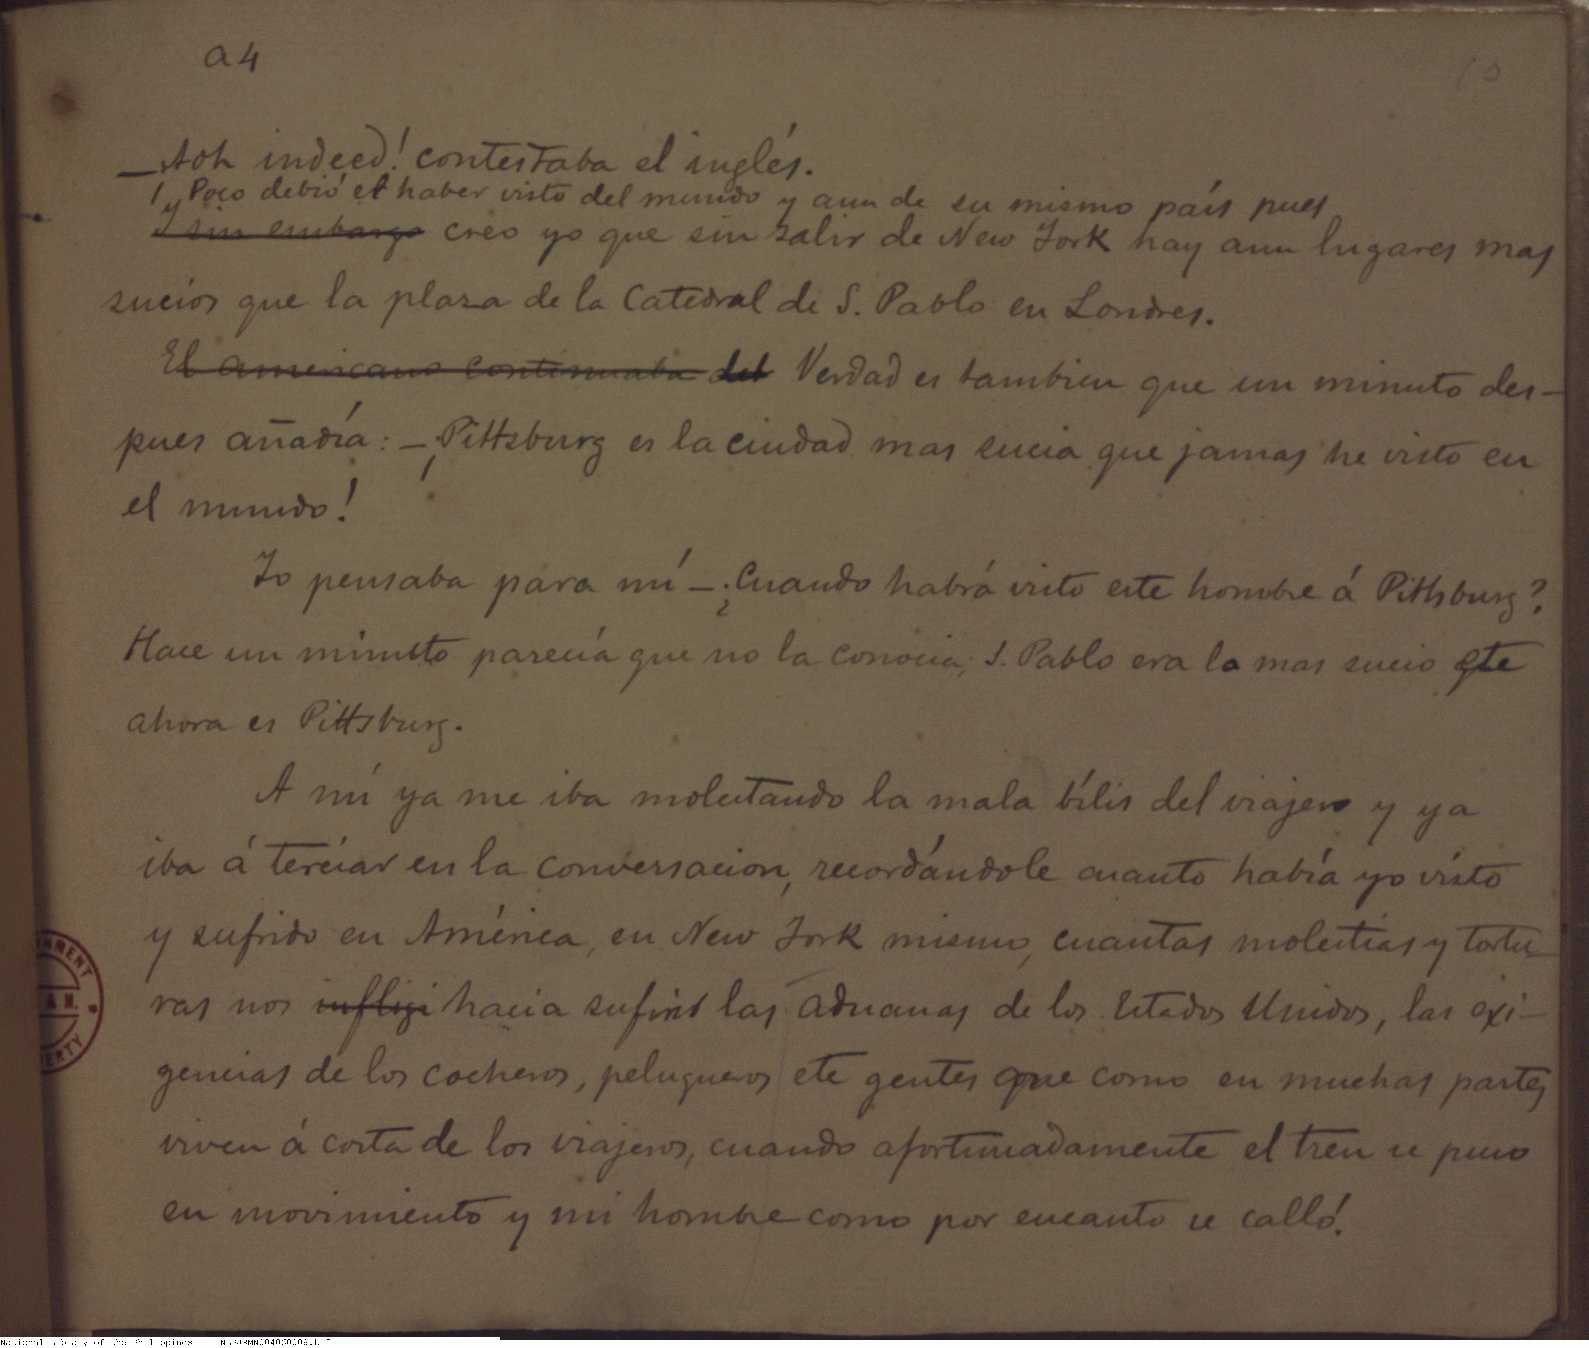 a 4
— Aoh indeed! contestaba el inglés.
Poco debió el haber visto del mundo y aun de su mismo país pues
Y sin embargo creo yo que sin salir de New York hay aun lugares mas
sucios que la plaza de la Catedral de S. Pablo en Londres.
El americano continuaba del Verdad es tambien que un minuto des-
pues añadía: — ¡Pittsburg es la ciudad mas sucia que jamas he visto en
el mundo!
Yo pensaba para mí — ¿Cuando habrá visto este hombre á Pittsburg?
Hace un minuto parecía que no la conocia; S. Pablo era lo mas sucio
ahora es Pittsburg.
A mí ya me iba molestando la mala bílis del viajero y ya
iba á terciar en la conversacion, recordándole cuanto había yo visto
y sufrido en América, en New York mismo, cuantas molestias y tortu-
ras nos infligi hacia sufrir las aduanas de los Estados Unidos, las exi-
gencias de los cocheros, peluqueros etc gentes que como en muchas partes
viven á costa de los viajeros, cuando afortunadamente el tren se puso
en movimiento y mi hombre como por encanto se calló.